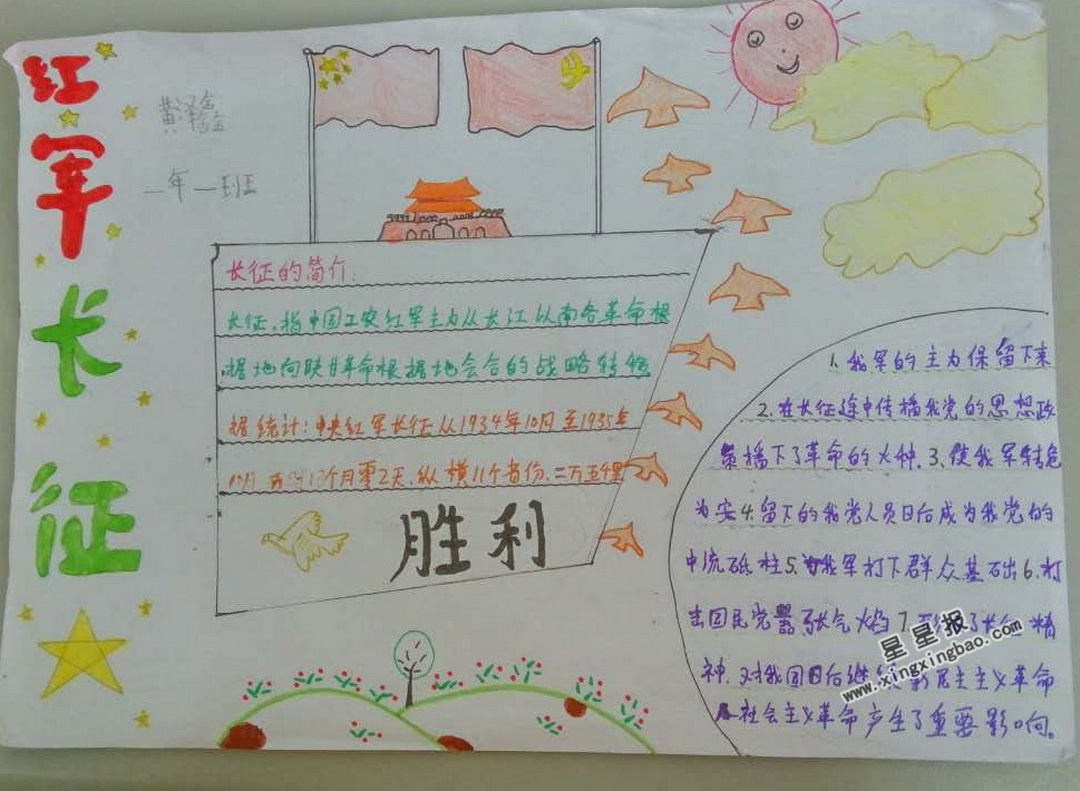 红军长征
黄泽鑫
一年一班
长征的简介:
长征,指中国工农红军主力从长江以南各革命根
据地向陕甘革命根据地会合的战略转移
据统计:中央红军长征从1934年10月至1935年
10月 13个月零2天,纵横11个省份、二万五千里
胜利
1.我军的主力保留下来
2.在长征途中传播我党的思想政
策播下了革命的火种.3.使我军转危
为安4.留下的我党人员日后成为我党的
中流砥柱5.我军打下群众基础出6.打
击国民党嚣张气焰7. 了长征精
神.对我国日后继续新民主主义革命
社会主义革命产生了重要影响。
星星报
www.xingxingbao.com